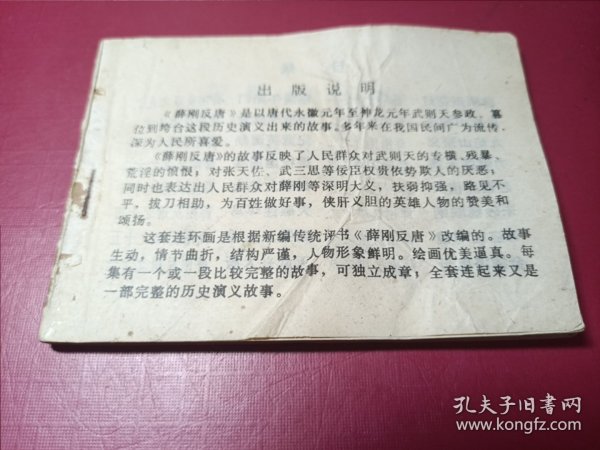 出版说明
《薛刚反唐》是以唐代永徽元年至神龙元年武则天参政、篡
位到垮台这段历史演义出来的故事。多年来在我国民间广为流传，
深为人民所喜爱。
《薛刚反唐》的故事反映了人民群众对武则天的专横、残暴、
荒淫的愤恨；对张天佐、武三思等佞臣权贵依势欺人的厌恶；
同时也表达出人民群众对薛刚等深明大义，扶弱抑强，路见不
平，拔刀相助，为百姓做好事，侠肝义胆的英雄人物的赞美和
颂扬。
这套连环画是根据新编传统评书《薛刚反唐》改编的。故事
生动，情节曲折，结构严谨，人物形象鲜明。绘画优美逼真。每
集有一个或一段比较完整的故事，可独立成章；全套连起来又是
一部完整的历史演义故事。
孔夫子旧书网
www.kongfz.com